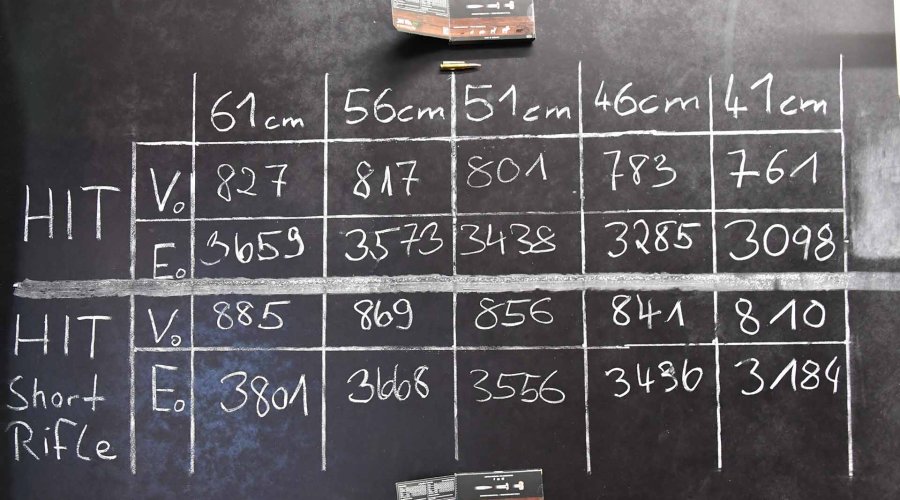 61cm 56cm 51cm 46cm 41cm
HIT V₀ 827 817 801 783 761
E₀ 3659 3573 3438 3285 3098
HIT V₀ 885 869 856 841 810
Short E₀ 3801 3668 3556 3436 3184
Rifle